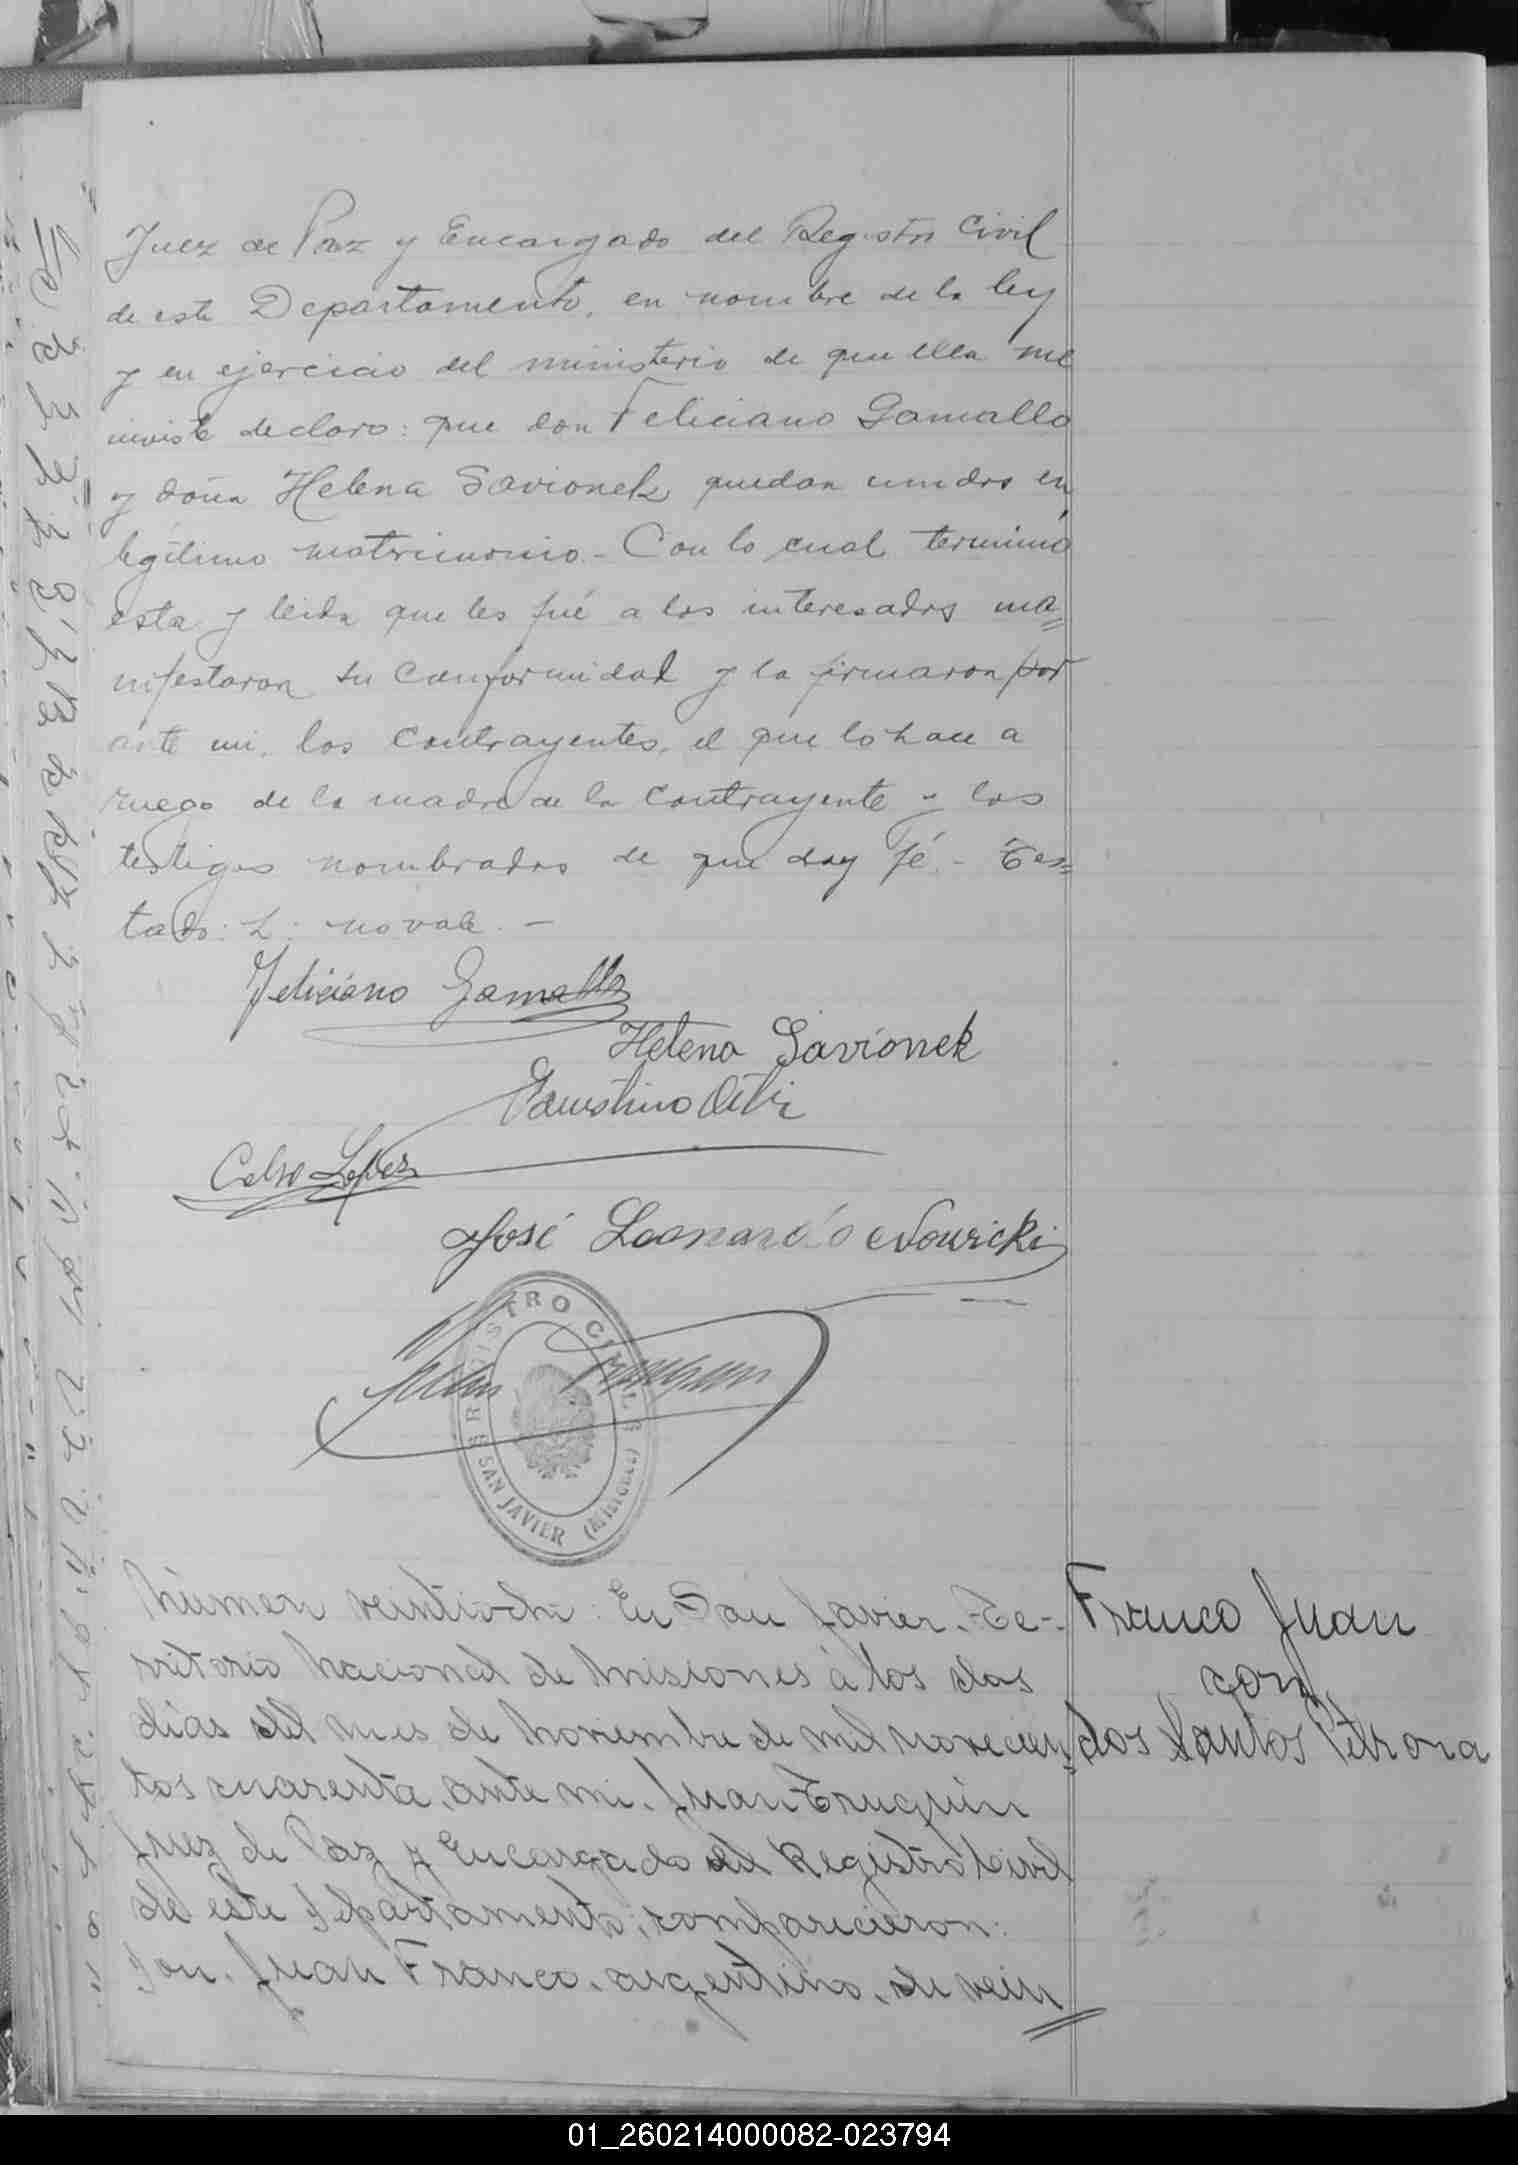 Juez de Paz y Encargado del Registro Civil
de este Departamento, en nombre de la ley
y en ejercicio del ministerio de que ella me
inviste declaro: que don Feliciano Gamallo
y doña Helena Savionek quedan unidos en
legítimo matrimonio.- Con lo cual terminó
esta y leida que les fué a los interesados ma=
nifestaron su conformidad y la firmaron por
ante mi, los contrayentes, el que lo hace a
ruego de la madre de la contrayente y los
testigos nombrados de que doy fé.- Tes=
tado: L: no vale.-
Feliciano Gamallo
Helena Savionek
Faustino
Celso Lopez
José Leonardo Nowicki
REGISTRO CIVIL
SAN JAVIER (Misiones)
Número veintiocho: En San Javier, Te-
rritorio Nacional de Misiones á los dos
días del mes de Noviembre de mil novecien=
tos cuarenta, ante mi, Juan Truquin
Juez de Paz y Encargado del Registro Civil
de este Departamento; comparecieron:
Don. Juan Franco, argentino, de vein=
Franco Juan
con
dos Santos Petrona
01_260214000082-023794